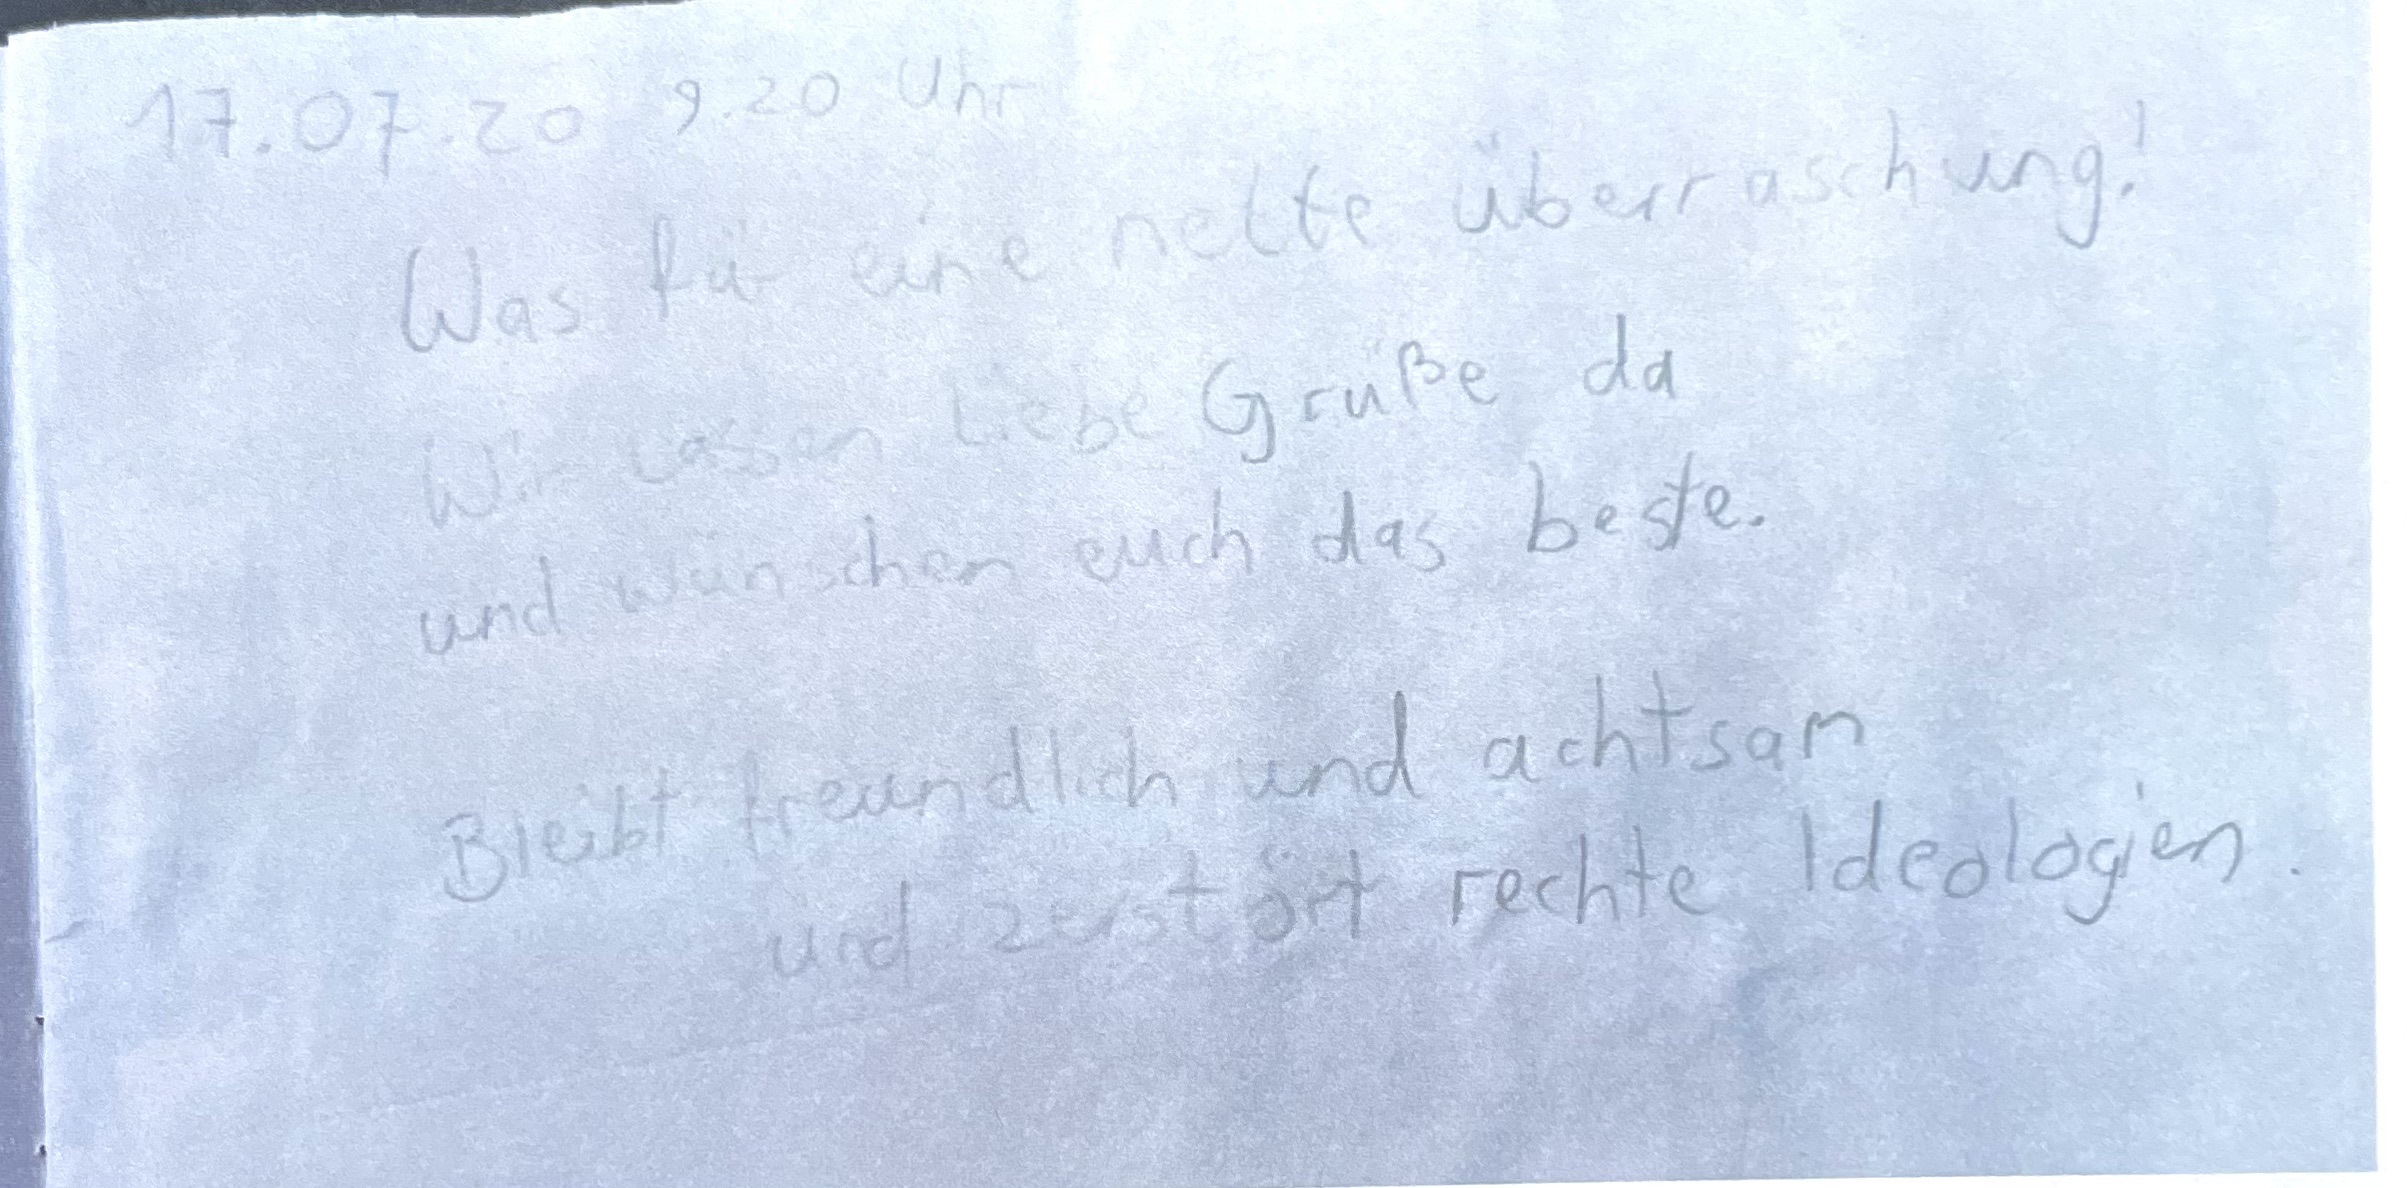 17.07.20 9.20 Uhr
Was für eine nette überraschung!
Wir lassen Liebe Grüße da
und wünschen euch das beste.
Bleibt freundlich und achtsam
und zerstört rechte Ideologien.